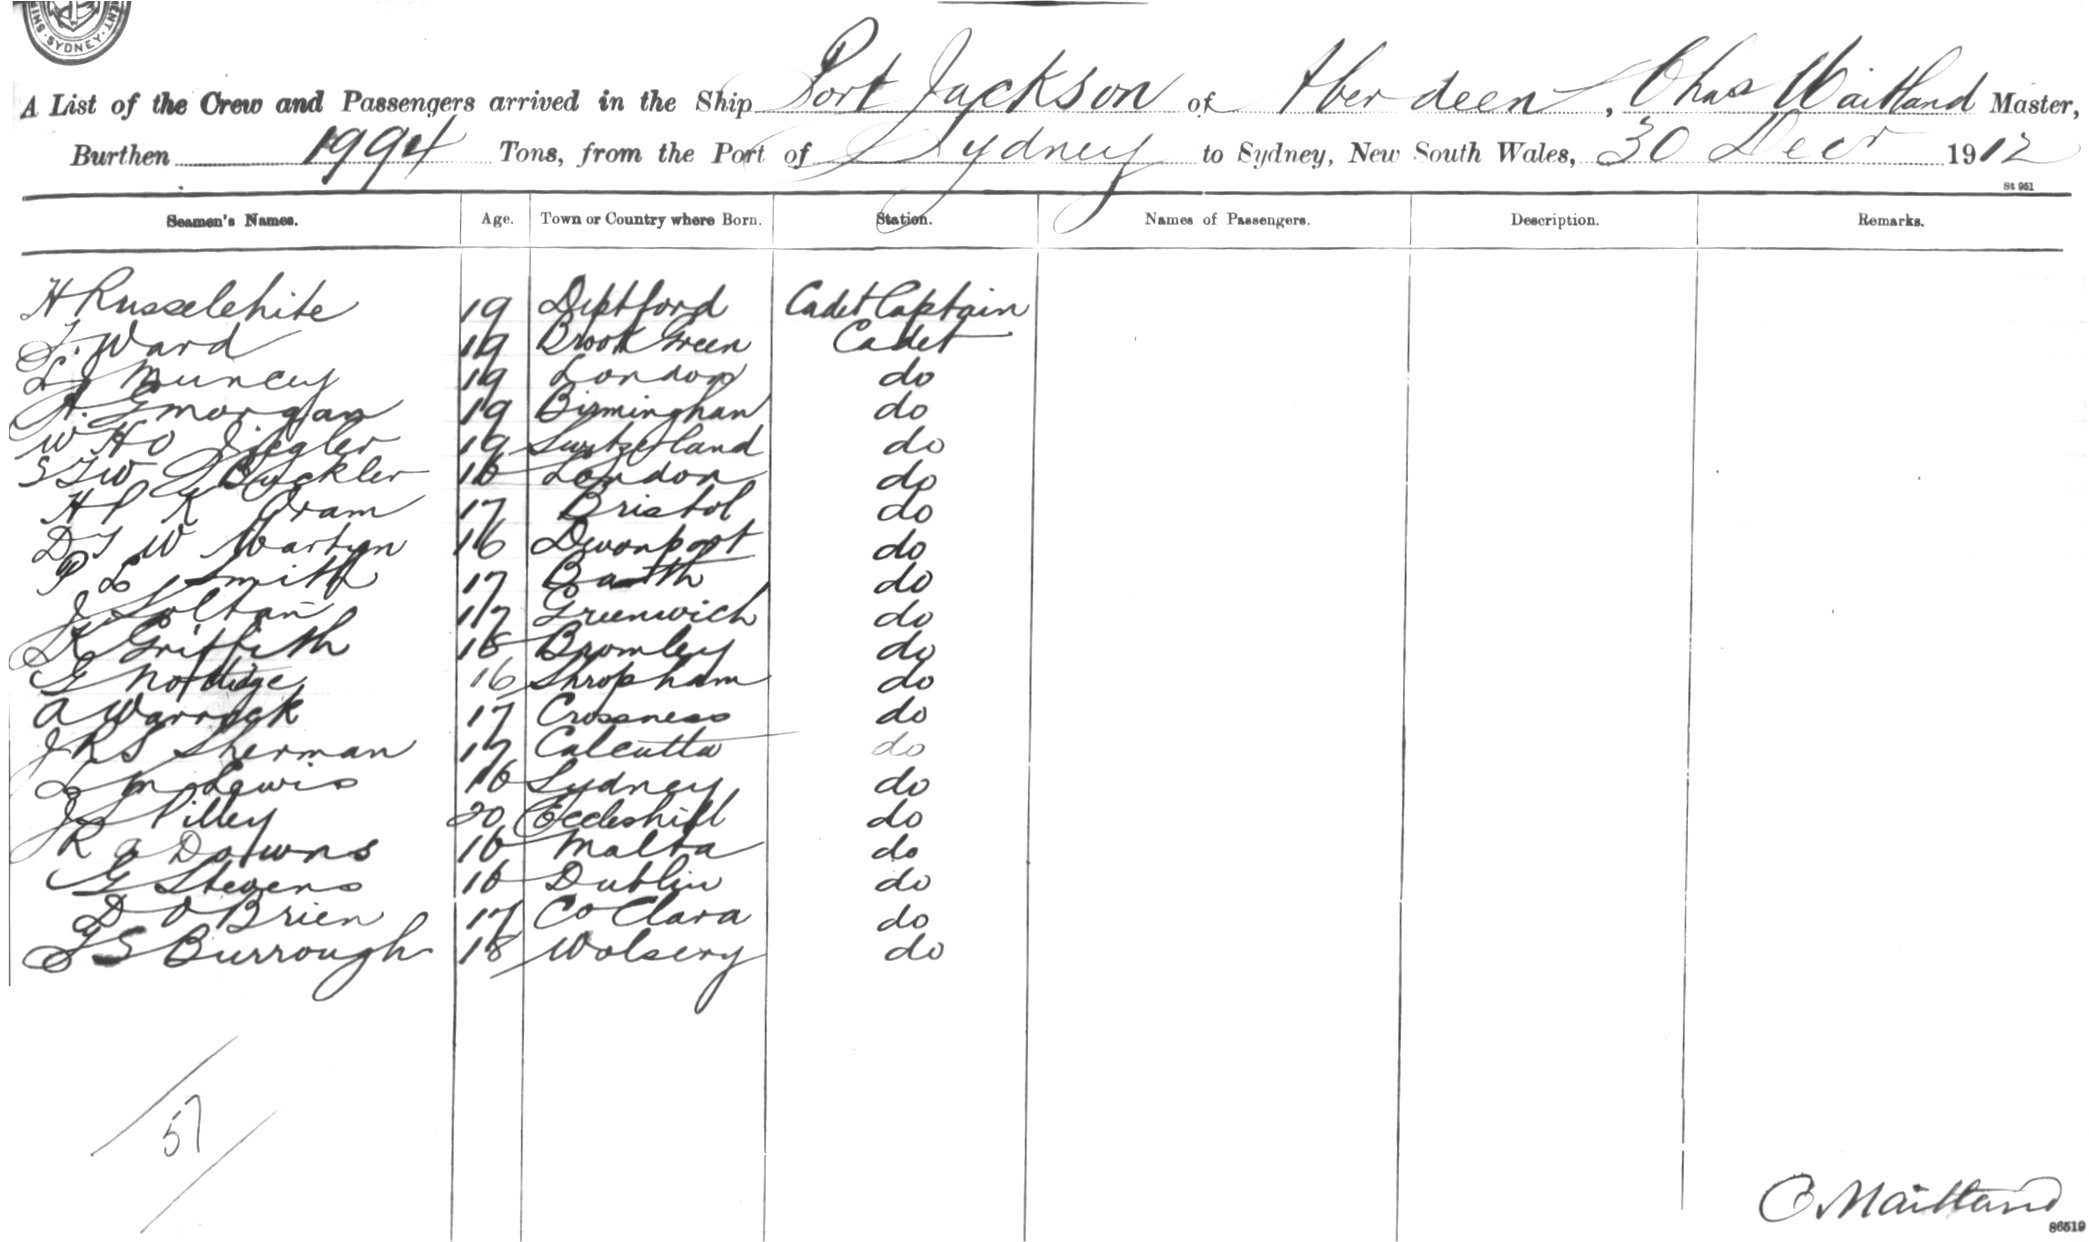 SYDNEY
A List of the Crew and Passengers arrived in the Ship Port Jackson of Aberdeen, Chas Maitland Master,
Burthen 1994 Tons, from the Port of Sydney to Sydney, New South Wales, 30 Decr 1912
St 951
Seamen's Names. Age. Town or Country where Born. Station. Names of Passengers. Description. Remarks.
H Russelehite 19 Deptford Cadet Captain
F. Ward 19 Brook Green Cadet
L J Muncey 19 London do
A. G Morgan 19 Birminghan do
W H O Ziegler 19 Switzerland do
S T W Buckler 16 London do
H P K Oram 17 Bristol do
D J W Martyn 16 Devonport do
P L Smith 17 Bath do
J Soltan 17 Greenwich do
K Griffith 18 Bromley do
G Nottidge 16 Shropham do
A Warrack 17 Crossness do
J R S Sherman 17 Calcutta do
L M Lewis 16 Sydney do
J Pilley 20 Eccleshill do
R Downs 16 Malta do
G Stevens 16 Dublin do
D O Brien 17 Co Clara do
J S Burrough 18 Wolsery do
57
C Maitland
86519